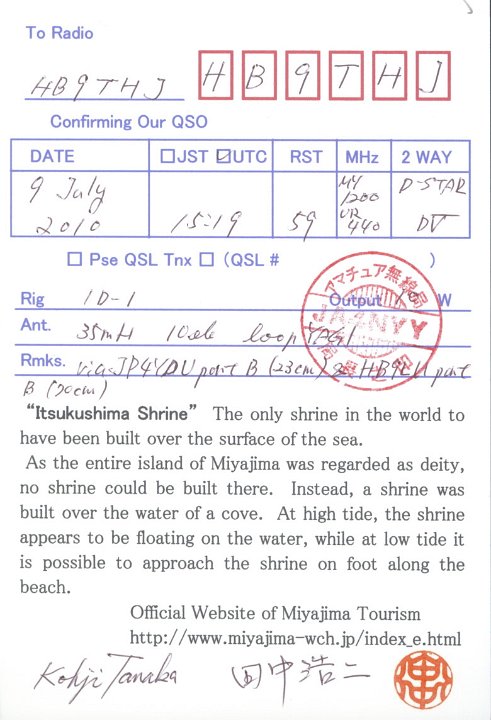 To Radio
HB9THJ H B 9 T H J
Confirming Our QSO
DATE □JST ☑UTC RST MHz 2 WAY
9 July 2010 15:19 59 MY 1200 UR 440 D-STAR DV
□ Pse QSL Tnx □ (QSL # )
Rig ID-1 Output 10 W
Ant. 35mH 10ele loop YAGI
Rmks. via JP4YDU port B (23cm) 2 HB9EU port
B (70cm)
アマチュア無線局
JA4NVY
“Itsukushima Shrine” The only shrine in the world to
have been built over the surface of the sea.
As the entire island of Miyajima was regarded as deity,
no shrine could be built there. Instead, a shrine was
built over the water of a cove. At high tide, the shrine
appears to be floating on the water, while at low tide it
is possible to approach the shrine on foot along the
beach.
Official Website of Miyajima Tourism
http://www.miyajima-wch.jp/index_e.html
Kohji Tanaka 田中浩二